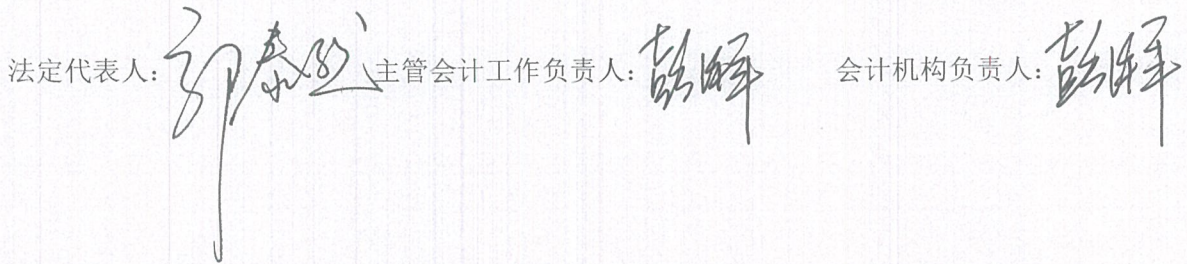 法定代表人：郭泰然 主管会计工作负责人：彭晖 会计机构负责人：彭晖